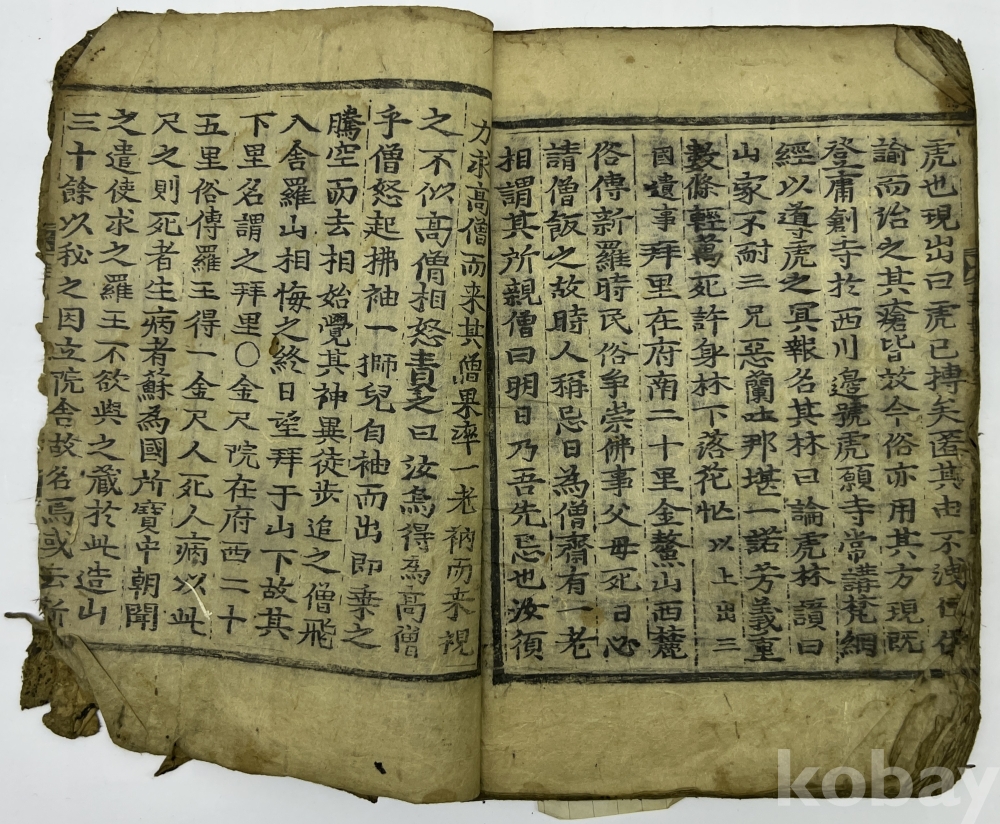 虎也現出曰虎已搏矣匿其由不洩但依
諭而治之其瘡皆效今俗亦用其方現既
登庸創寺於西川邊號虎願寺常講梵網
經以導虎之冥報名其林曰論虎林讚曰
山家不耐三兄惡蘭吐那堪一諾芳義重
數條輕萬死許身林下落花忙以上出三
國遺事拜里在府南二十里金鰲山西麓
俗傳新羅時民俗争崇佛事父母死日必
請僧飯之故時人稱忌日為僧齋有一老
相謂其所親僧曰明日乃吾先忌也汝須
力求高僧而来其僧果率一老衲而来視
之不似高僧相怒責之曰汝烏得為高僧
乎僧怒起拂袖一獅兒自袖而出即乗之
騰空而去相始覺其神異徒步追之僧飛
入含羅山相悔之終日望拜于山下故其
下里名謂之拜里〇金尺院在府西二十
五里俗傳羅王得一金尺人死人病以此
尺之則死者生病者蘇為國所寶中朝聞
之遣使求之羅王不欲與之藏於此造山
三十餘以我之因立院舎故名焉或云所
kobay